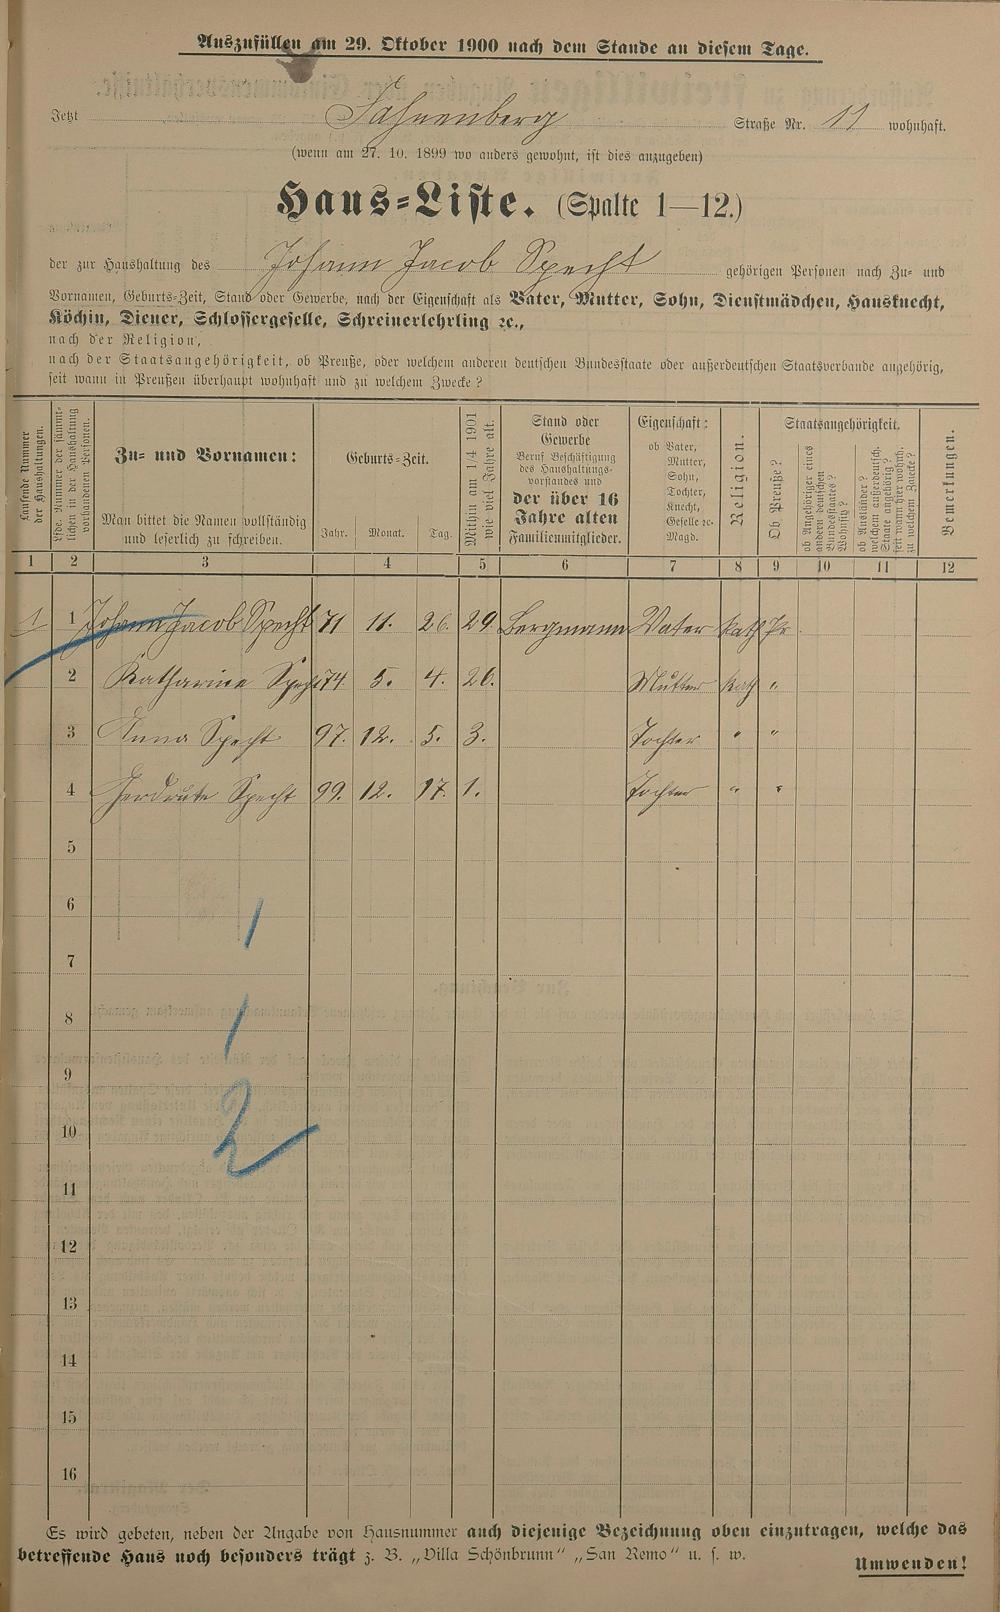 Auszufüllen am 29. Oktober 1900 nach dem Stande an diesem Tage.
Jetzt Fahnenberg Straße Nr. 11 wohnhaft.
(wenn am 27. 10. 1899 wo anders gewohnt, ist dies anzugeben)
Haus-Liste. (Spalte 1—12.)
der zur Haushaltung des Johann Jacob Specht gehörigen Personen nach Zu- und
Vornamen, Geburts-Zeit, Stand oder Gewerbe, nach der Eigenschaft als Vater, Mutter, Sohn, Dienstmädchen, Hausknecht,
Köchin, Diener, Schlossergeselle, Schreinerlehrling ꝛc.,
nach der Religion,
nach der Staatsangehörigkeit, ob Preuße, oder welchem anderen deutschen Bundesstaate oder außerdeutschen Staatsverbande angehörig,
seit wann in Preußen überhaupt wohnhaft und zu welchem Zwecke?
Laufende Nummer der Haushaltungen.
Lfde. Nummer der sämmtlichen in der Haushaltung vorhandenen Personen.
Zu- und Vornamen:
Man bittet die Namen vollständig
und leserlich zu schreiben.
Geburts-Zeit.
Jahr. Monat. Tag.
Mithin am 1/4 1901
wie viel Jahre alt.
Stand oder
Gewerbe
Beruf Beschäftigung
des Haushaltungs-
vorstandes und
der über 16
Jahre alten
Familienmitglieder.
Eigenschaft:
ob Vater,
Mutter,
Sohn,
Tochter,
Knecht,
Geselle ꝛc-
Magd.
Religion.
Staatsangehörigkeit.
Ob Preuße?
ob Angehöriger eines
andern deutschen
Bundesstaates?
Wohnsitz?
ob Ausländer?
welchem außerdeutsch.
Staate angehörig?
seit wann hier wohnh.
zu welchem Zwecke?
Bemerkungen.
1 2 3 4 5 6 7 8 9 10 11 12
1 1 Johann Jacob Specht 71 11. 26. 29. Bergmann Vater kath Pr
2 Katharina Specht 74. 5. 4. 26. Mutter kath "
3 Anna Specht 97. 12. 5. 3. Tochter " "
4 Gerdrute Specht 99. 12. 17. 1. Tochter " "
5
6
1
7
8
1
9
10
2
11
12
13
14
15
16
Es wird gebeten, neben der Angabe von Hausnummer auch diejenige Bezeichnung oben einzutragen, welche das
betreffende Haus noch besonders trägt z. B. „Villa Schönbrunn" „San Remo" u. s. w.
Umwenden!